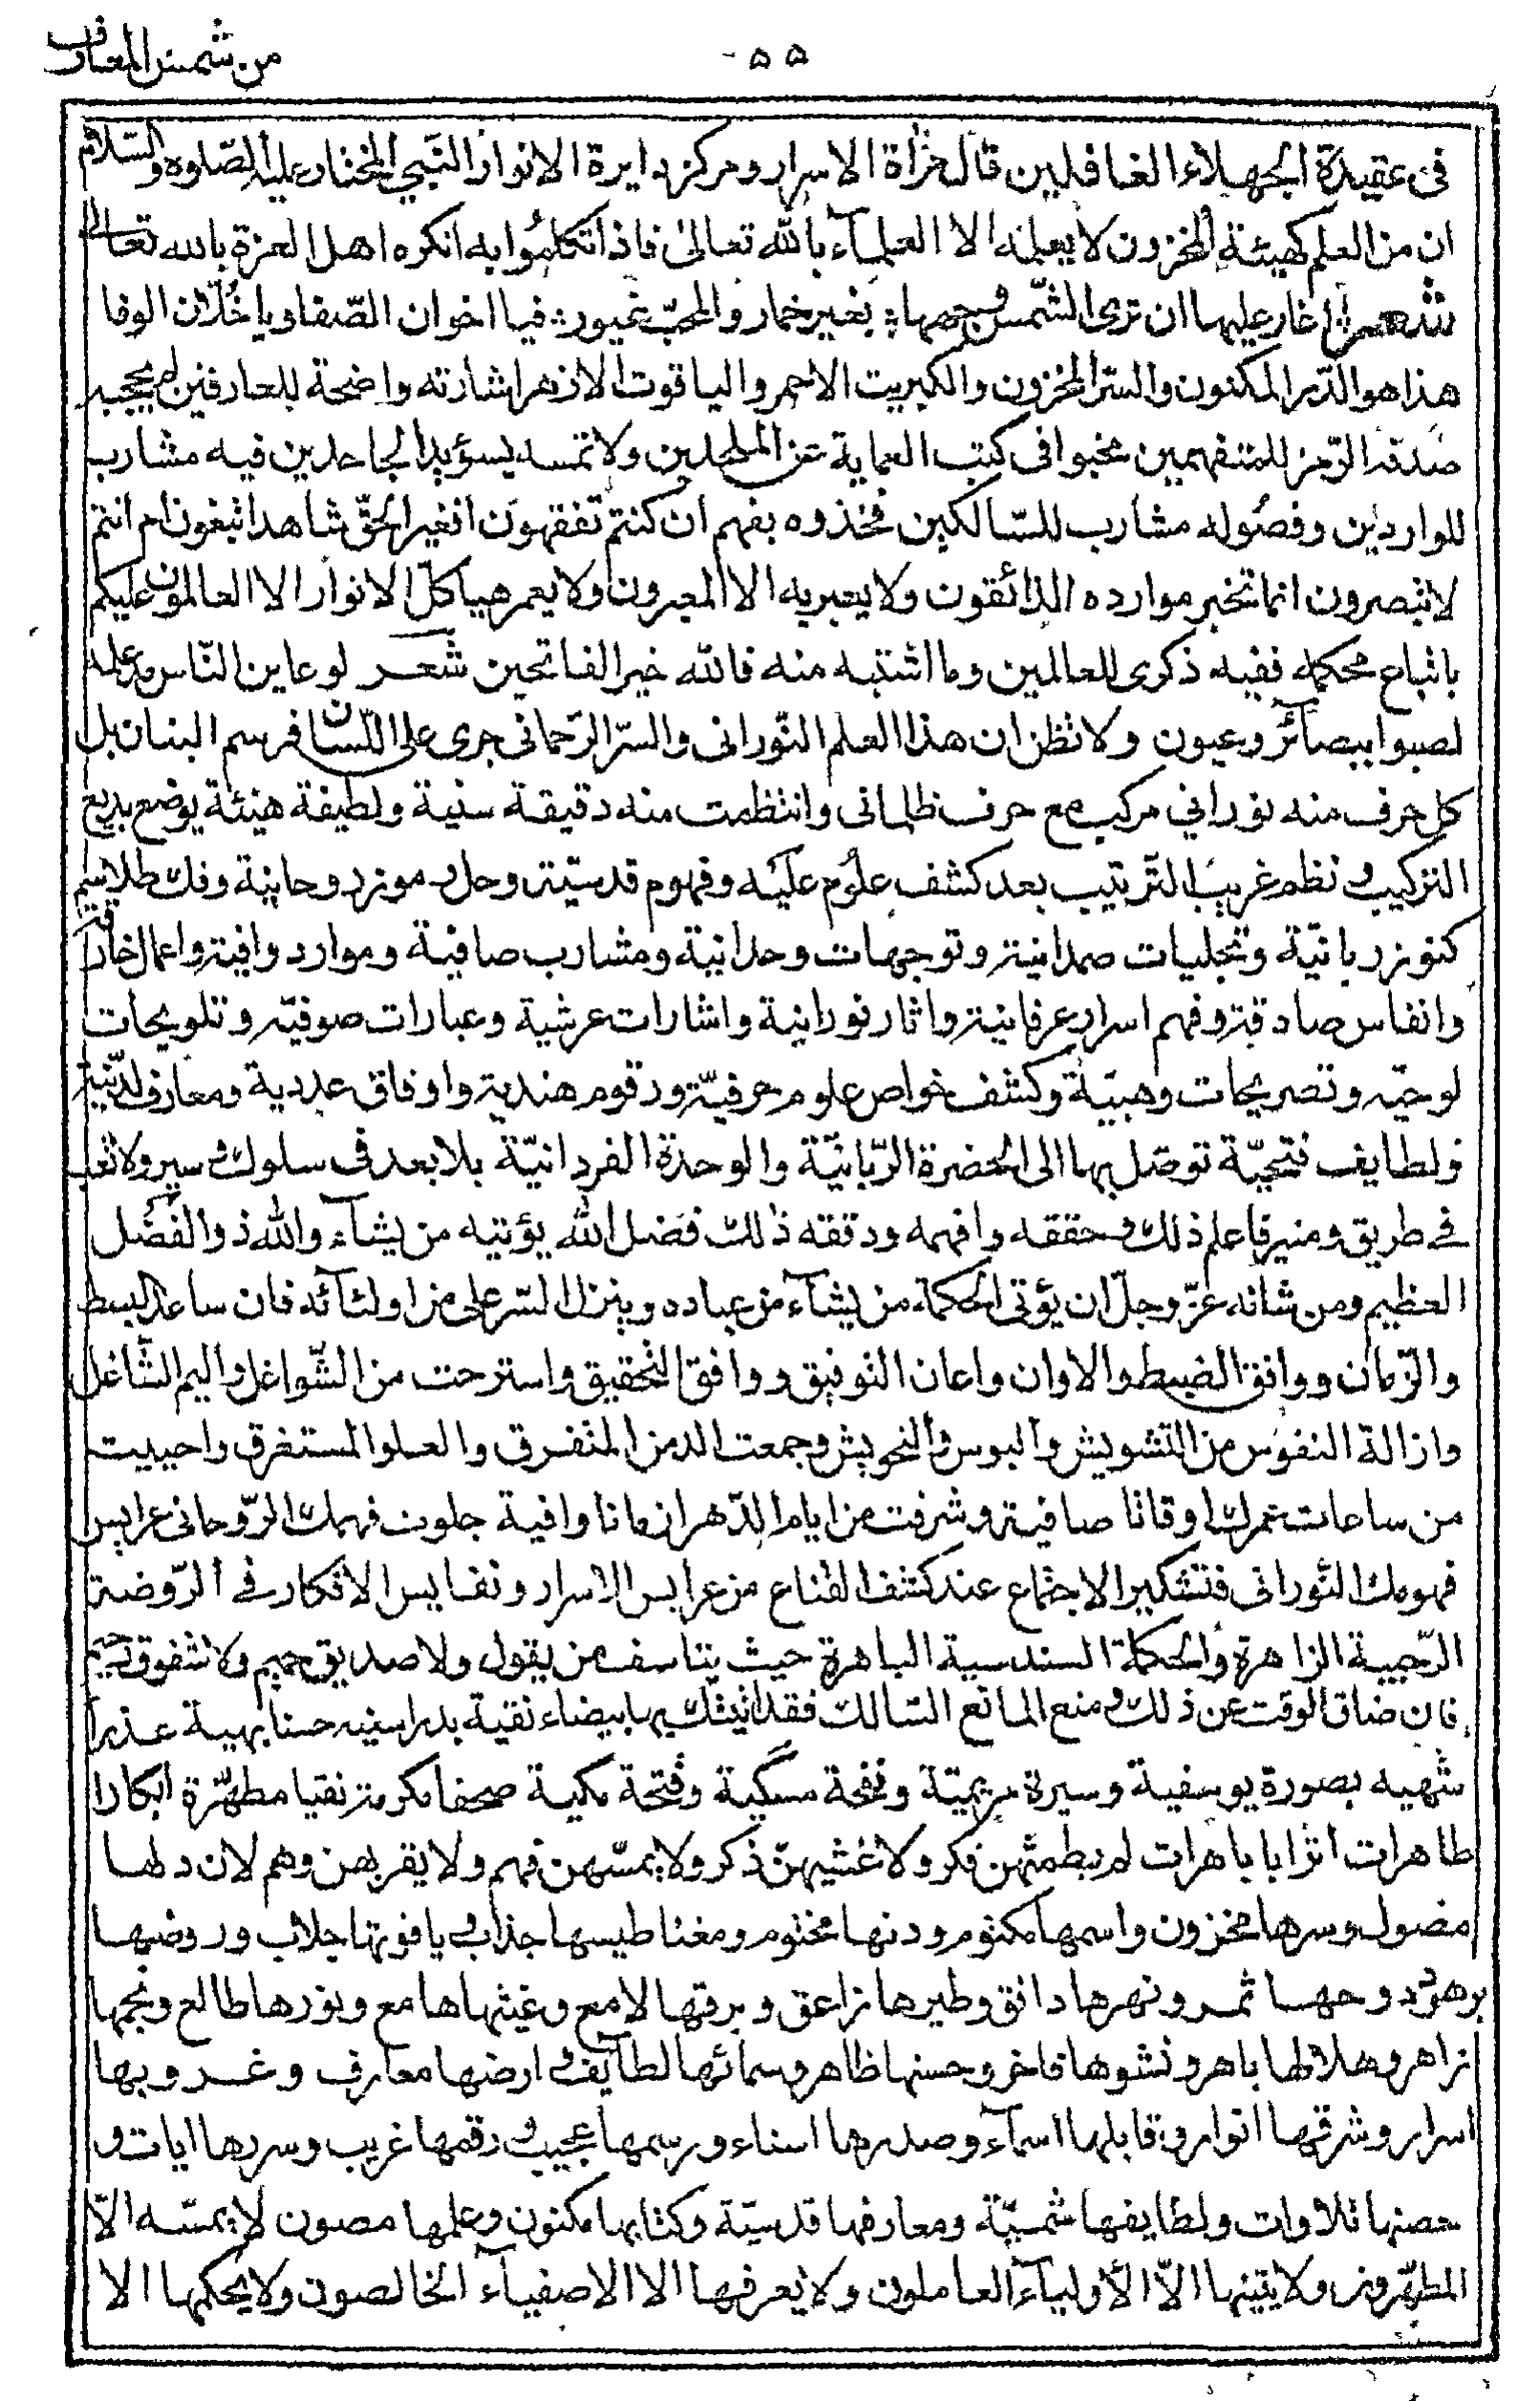 من شمس المعارف
٥٥
فى عقيدة الجهلاء الغافلين قال مرأة الاسرار ومركز دايرة الانوار النبي المختار عليه الصّلوه والسّلام
ان من العلم كهيئة المخزون لا يعلمه الا العلمآء بالله تعالى فاذا تكلموا به انكره اهل العزة بالله تعالى
شعر اغار عليها ان ترى الشّمس وجهها بغير خمار والمحبّ غيور فيا اخوان الصّفا ويا خُلّان الوفا
هذا هو الدّر المكنون والسّر المخزون والكبريت الاحمر والياقوت الازهر اشارته واضحة للعارفين لم يحجبه
صدقه الرّمز للمتفهمين مخبوا فى كتب العماية عن الملحدين ولا تمسه يسؤ يد الجاحدين فيه مشارب
للواردين وفصُوله مشارب للسّالكين فخذوه بفهم ان كنتم تفقهون افغير الحقّ شاهدا تبغون ام انتم
لا تبصرون انما تخبر موارده الذائقون ولا يعبر به الا المعبرون ولا يعمر هياكل الانوار الا العالمون عليكم
باتباع محكمه ففيه ذكرى للعالمين وما اشتبه منه فالله خير الفاتحين شعر لو عاين النّاس علمه
لصبوا ببصآئر وعيون ولا تظن ان هذا العلم النّورانى والسرّ الرّحمانى جرى على اللّسان فرسم البنان بل
كل حرف منه نوراني مركب مع حرف ظلمانى وانتظمت منه دقيقة سنية ولطيفة هنيئة يوضع بديع
التركيب ونظم غريب الترتيب بعد كشف علوم عليه وفهوم قدسيّة وحل رموز روحانية وفك طلاسم
كنوز ربانيّة وتجليات صمدانية وتوجهات وحدانية ومشارب صافية وموارد وافية واعمال خارقة
وانفاس صادقة وفهم اسرار عرفانية واثار نورانية واشارات عرشية وعبارات صوفيّه وتلويحات
لوحيّه وتصريحات وهبيّة وكشف خواص علوم حرفيّة ورقوم هندية واوفاق عددية ومعارف لدنّية
ولطايف فتحيّة توصّل بها الى الحضرة الرّبانيّة والوحدة الفردانيّة بلا بعد فى سلوك وسير ولا تعب
فى طريق ومنير فاعلم ذلك وحققه وافهمه ودققه ذلك فضل الله يؤتيه من يشآء والله ذو الفضل
العظيم ومن شانه عزّ وجلّ ان يؤتى الحكمة من يشآء من عباده وينزل السّر على من اوليآئه فان ساعد البسط
والزّمان ووافق الضبط والاوان واعان التوفيق ووافق التحقيق واسترحت من الشّواغل واليم الشّاغل
وازالة النفوس من التشويش والبوس والتحويش وجمعت الدمن المتفرق والعلو المستغرق واحييت
من ساعات عمرك اوقاتا صافية وشرفت من ايام الدّهر ازمانا وافية جلوت فهمك الرّوحانى عرايس
فهومك النّورانى فتشكير الاجتماع عند كشف القناع من عرايس الاسرار ونفايس الافكار فى الرّوضة
الرّجبية الزاهرة والحكمة السندسية الباهرة حيث يتاسف من يقول ولا صديق حميم ولا شفوق رحيم
فان ضاق الوقت عن ذلك ومنع المانع السّالك فقد اتيتك بها بيضاء نقية بدرا سنيه حسنا بهية عذرا
شهيه بصورة يوسفية وسيرة مريميّة ونفحة مسكية وفتحة مكية صحفا مكرمة نقيا مطهّرة ابكارا
طاهرات اترابا باهرات لم يطمثهن فكر ولا غشيهنّ ذكر ولا يمسّهن فهم ولا يقربهن وهم لان دلها
مصُول وسرها مخزون واسمها مكتوم ودنها مختوم ومغناطيسها جذاب وياقوتها جلاب وروضها
زهر ودوحها ثمر ونهرها دافق وطيرها زاعق وبرقها لامع وغيثها هامع ونورها طالع ونجمها
زاهر وهلالها باهر ونشوها فاخر وحسنها ظاهر وسمائها لطايف وارضها معارف وغروبها
اسرار وشرقها انوار وقابلها اسمآء وصدرها اسناء ورسمها عجيب ورقمها غريب وسرها ايات و
حصنها تلاوات ولطايفها شمسيّة ومعارفها قدسيّة وكتابها مكنون وعلمها مصون لا يمسّه الاّ
المطهّرون ولا يتينها الاّ الأوليآء العاملون ولا يعرفها الا الاصفيآء الخالصون ولا يحكمها الا